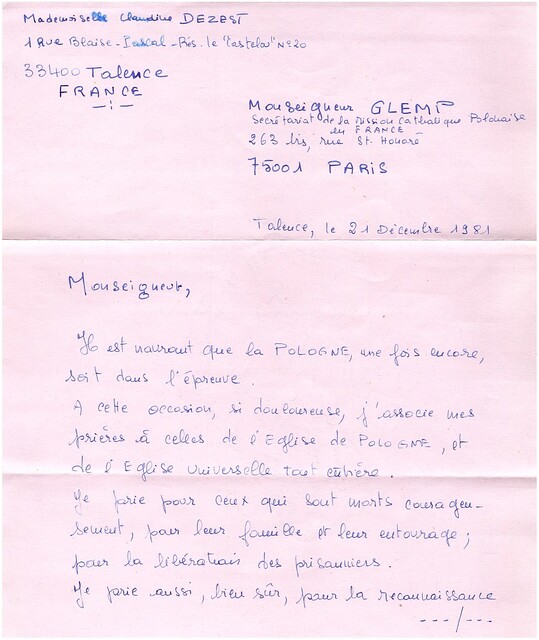 Mademoiselle Claudine DEZEST
1 Rue Blaise-Pascal-Rés. le "Castelou" N°20
33400 Talence
FRANCE
-:-
Monseigneur GLEMP
Secrétariat de la Mission Catholique Polonaise
en FRANCE
263 bis, rue St. Honoré
75001 PARIS
Talence, le 21 Décembre 1981
Monseigneur,
Il est navrant que la POLOGNE, une fois encore,
soit dans l'épreuve.
A cette occasion, si douloureuse, j'associe mes
prières à celles de l'Eglise de POLOGNE, et
de l'Eglise Universelle tout entière.
Je prie pour ceux qui sont morts courageu-
sement, pour leur famille et leur entourage ;
pour la libération des prisonniers.
Je prie aussi, bien sûr, pour la reconnaissance
---/---